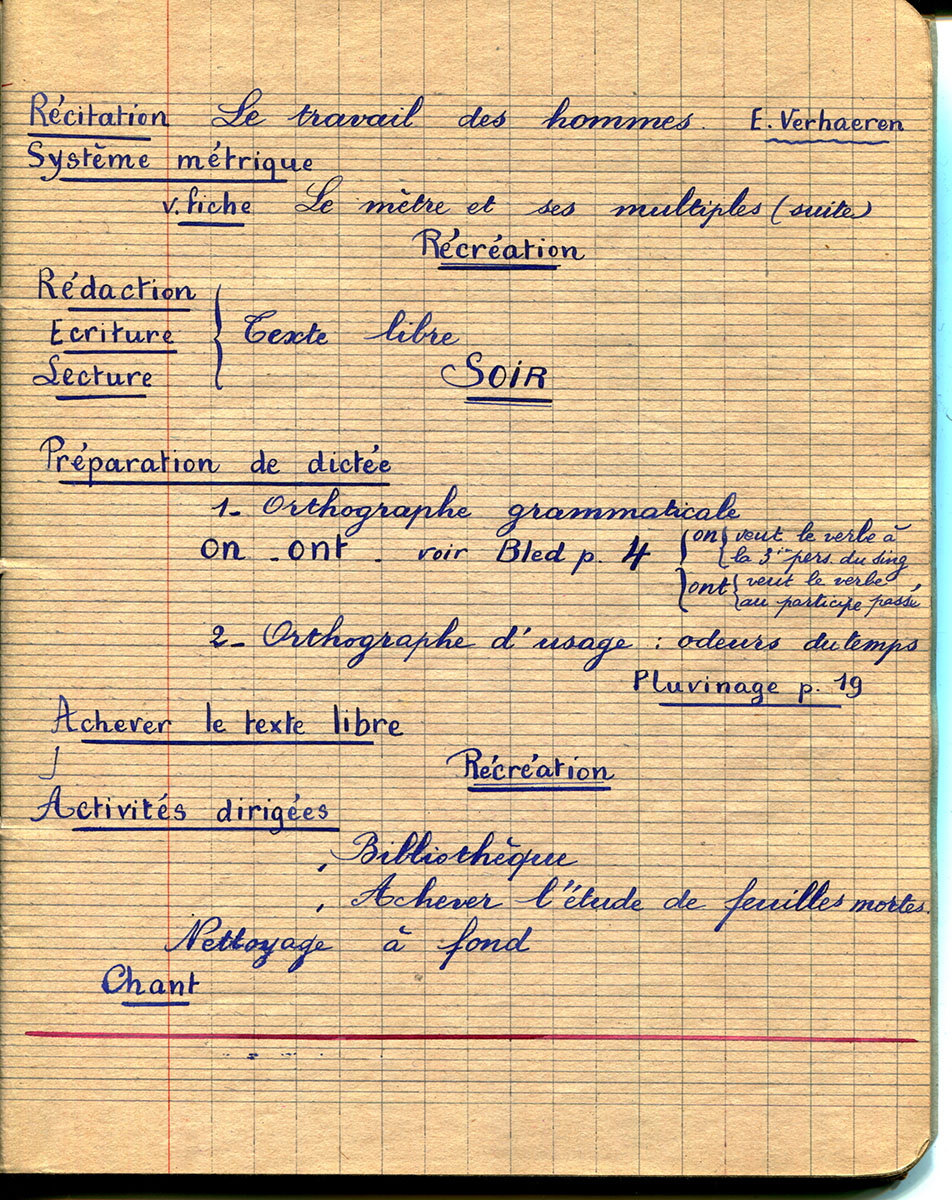 Récitation Le travail des hommes. E. Verhaeren
Système métrique
v. fiche Le mètre et ses multiples (suite)
Récréation
Rédaction
Ecriture
Lecture
Texte libre
SOIR
Préparation de dictée
1_ Orthographe grammaticale
on - ont - voir Bled p. 4
on veut le verbe à
la 3ie pers. du sing
ont veut le verbe
au participe passé
2_ Orthographe d'usage : odeurs du temps
Pluvinage p. 19
Achever le texte libre
Récréation
Activités dirigées
, Bibliothèque
, Achever l'étude de feuilles mortes.
Nettoyage à fond
Chant